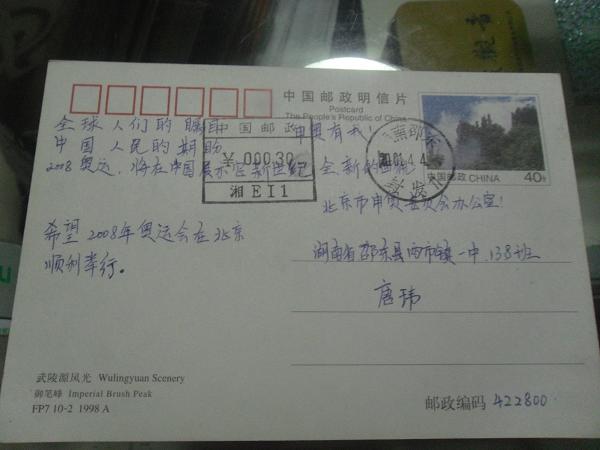 中国邮政明信片
Postcard
The People's Republic of China
中国邮政 CHINA
40分
中国邮政
¥ 000.30
湘 EI1
全球人们的瞩目
中国人民的期盼
2008奥运,将在中国展示
希望2008年奥运会在北京
顺利举行。
申奥有我!
全新的
北京市申奥委员会办公室!
湖南省邵东县两市镇一中.138班
唐玮
武陵源风光 Wulingyuan Scenery
御笔峰 Imperial Brush Peak
FP7 10-2 1998 A
邮政编码 422800